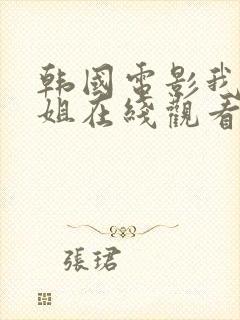 韩國電影我
姐在线觀看
張珺